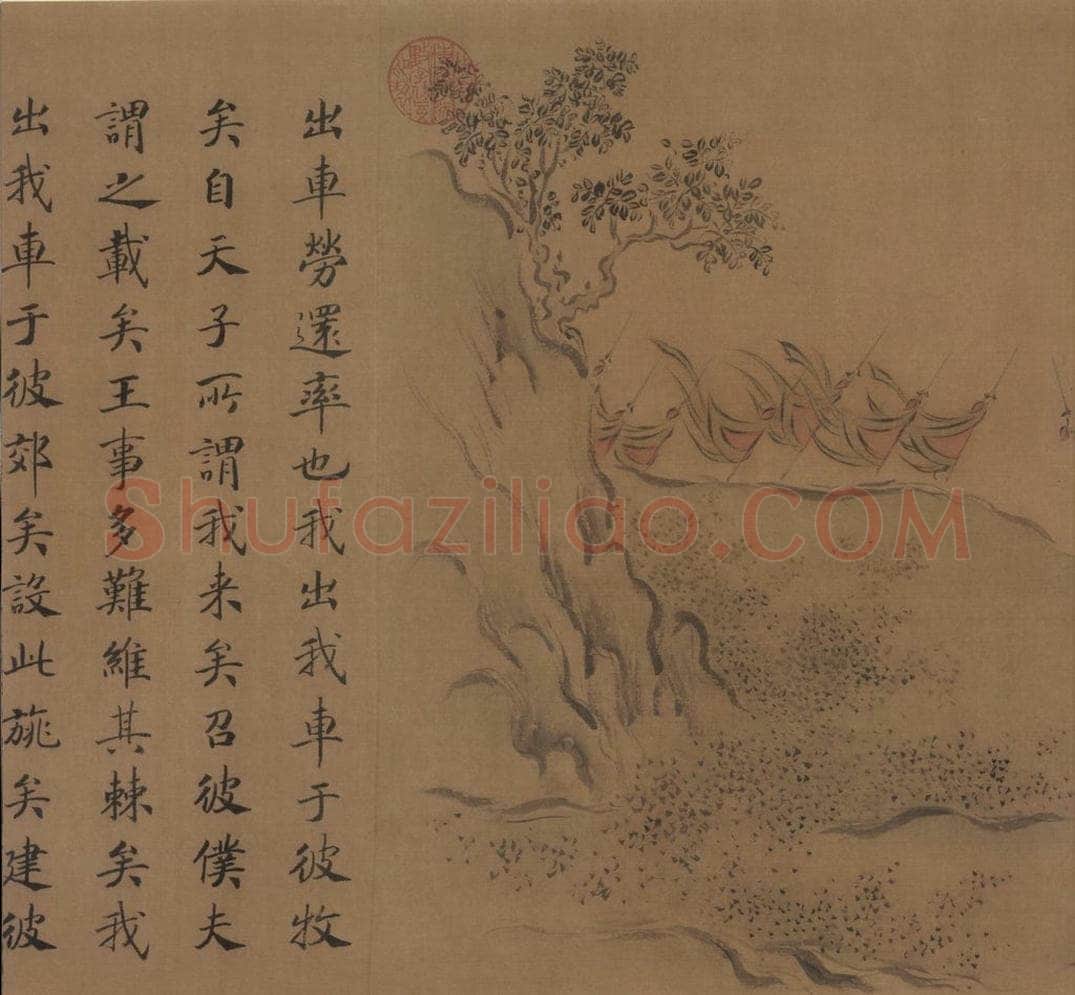 出車勞還率也我出我車于彼牧
矣自天子所謂我来矣召彼僕夫
謂之載矣王事多難維其棘矣我
出我車于彼郊矣設此旐矣建彼
Shufaziliao.COM